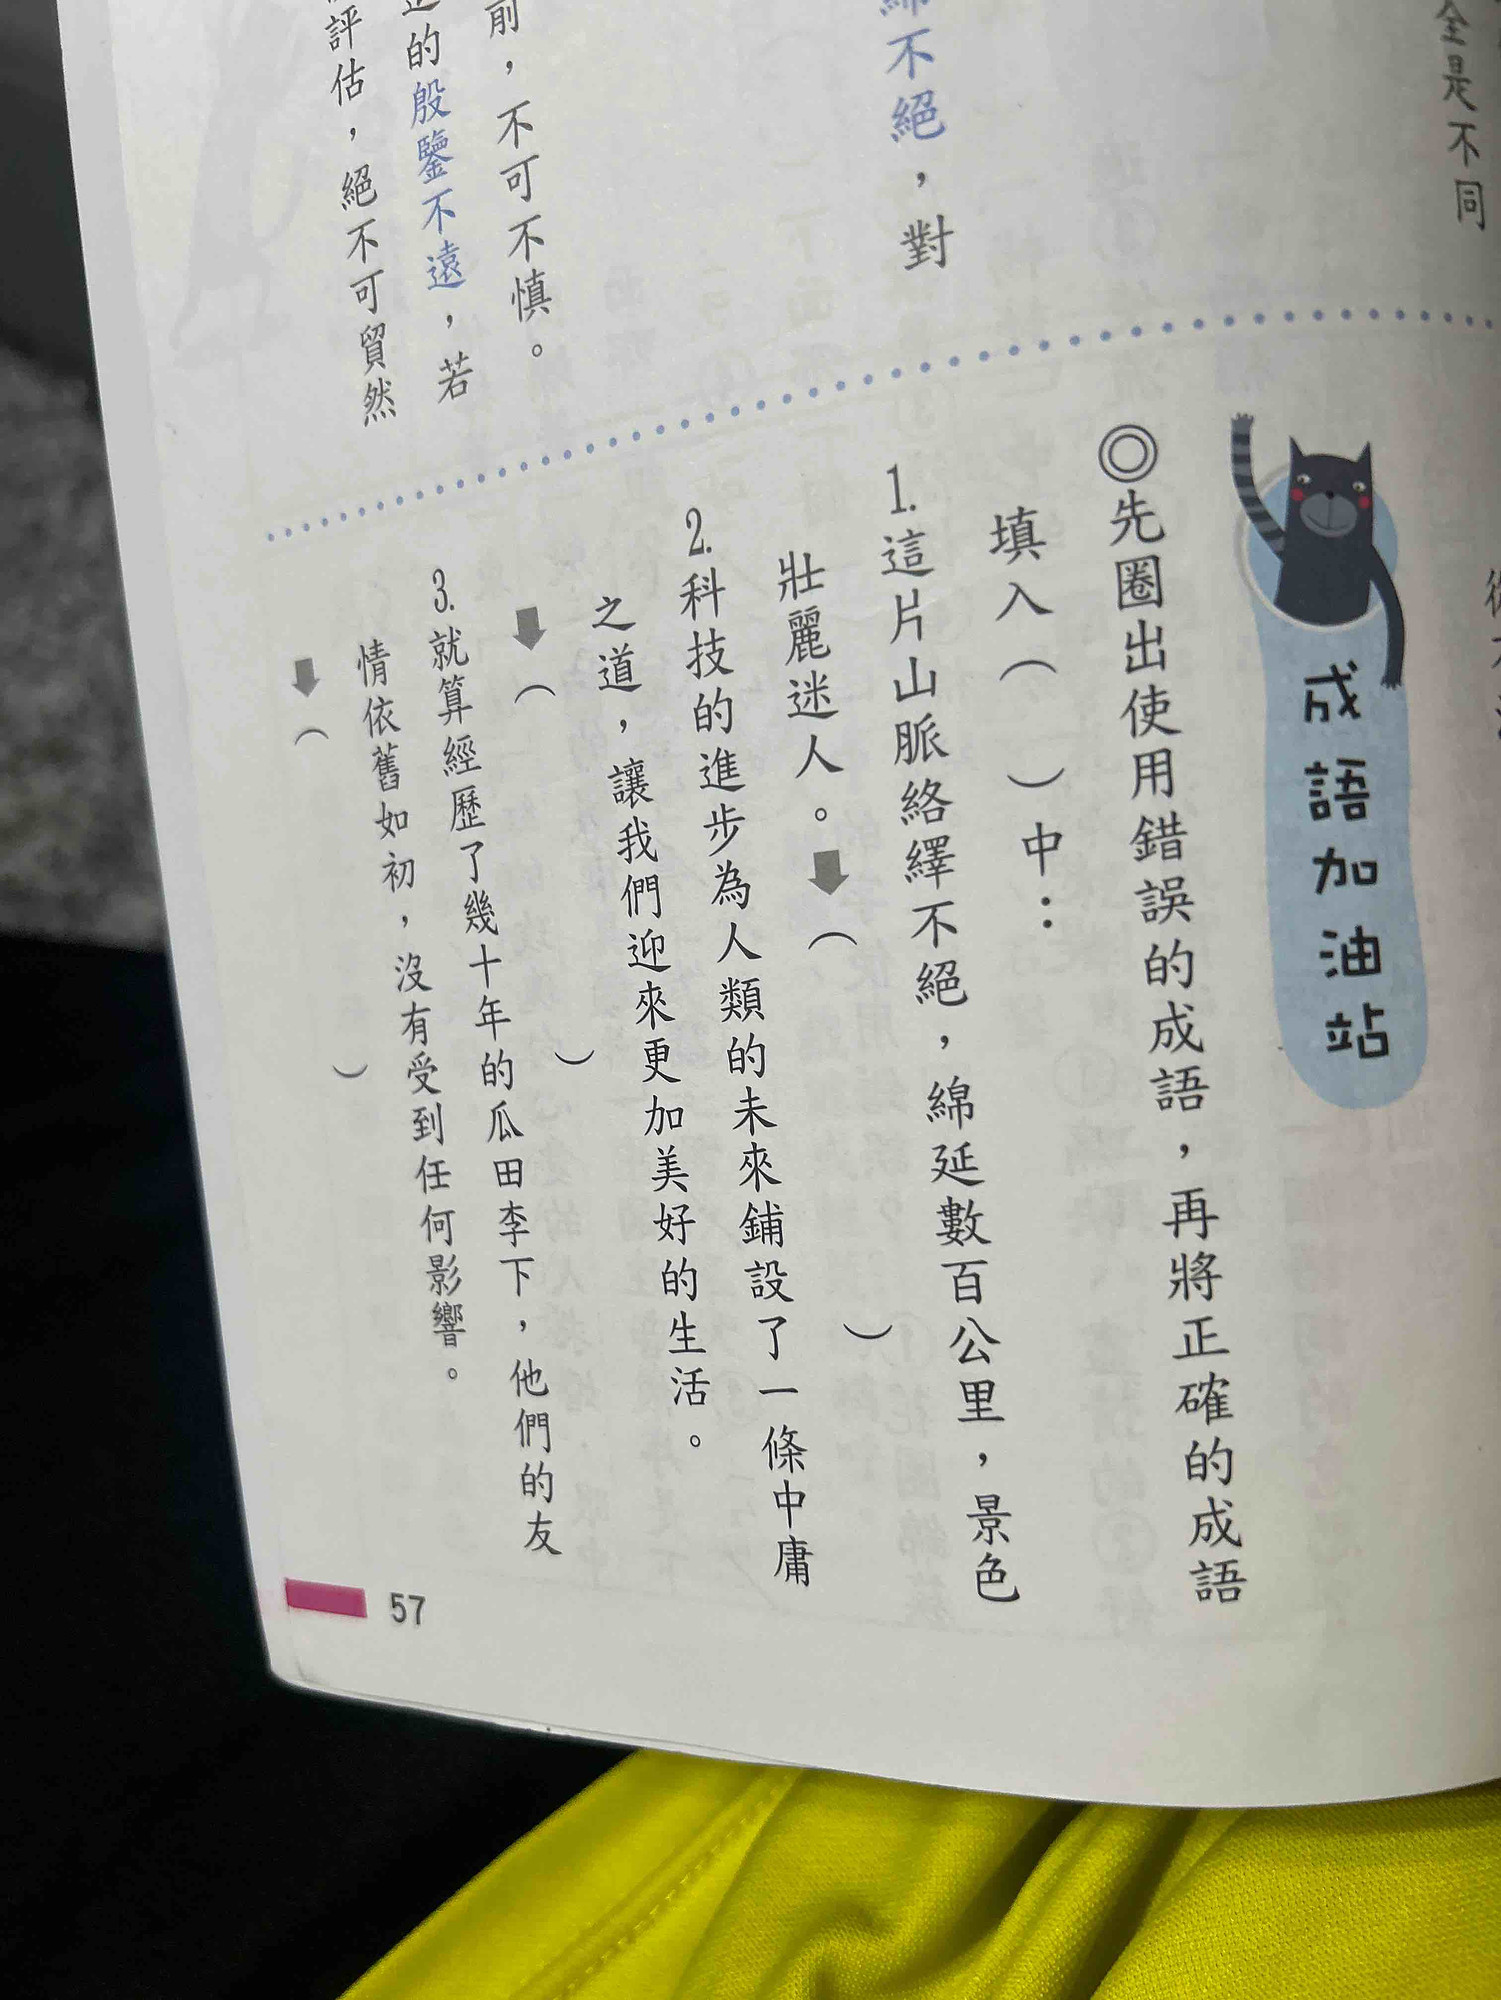 全是不同
不絕，對
前，不可不慎。
的殷鑒不遠，若
評估，絕不可貿然
成語加油站
◎先圈出使用錯誤的成語，再將正確的成語
填入（　）中：
1.這片山脈絡繹不絕，綿延數百公里，景色
壯麗迷人。⬇（　）
2.科技的進步為人類的未來鋪設了一條中庸
之道，讓我們迎來更加美好的生活。
⬇（　）
3.就算經歷了幾十年的瓜田李下，他們的友
情依舊如初，沒有受到任何影響。
⬇（　）
57